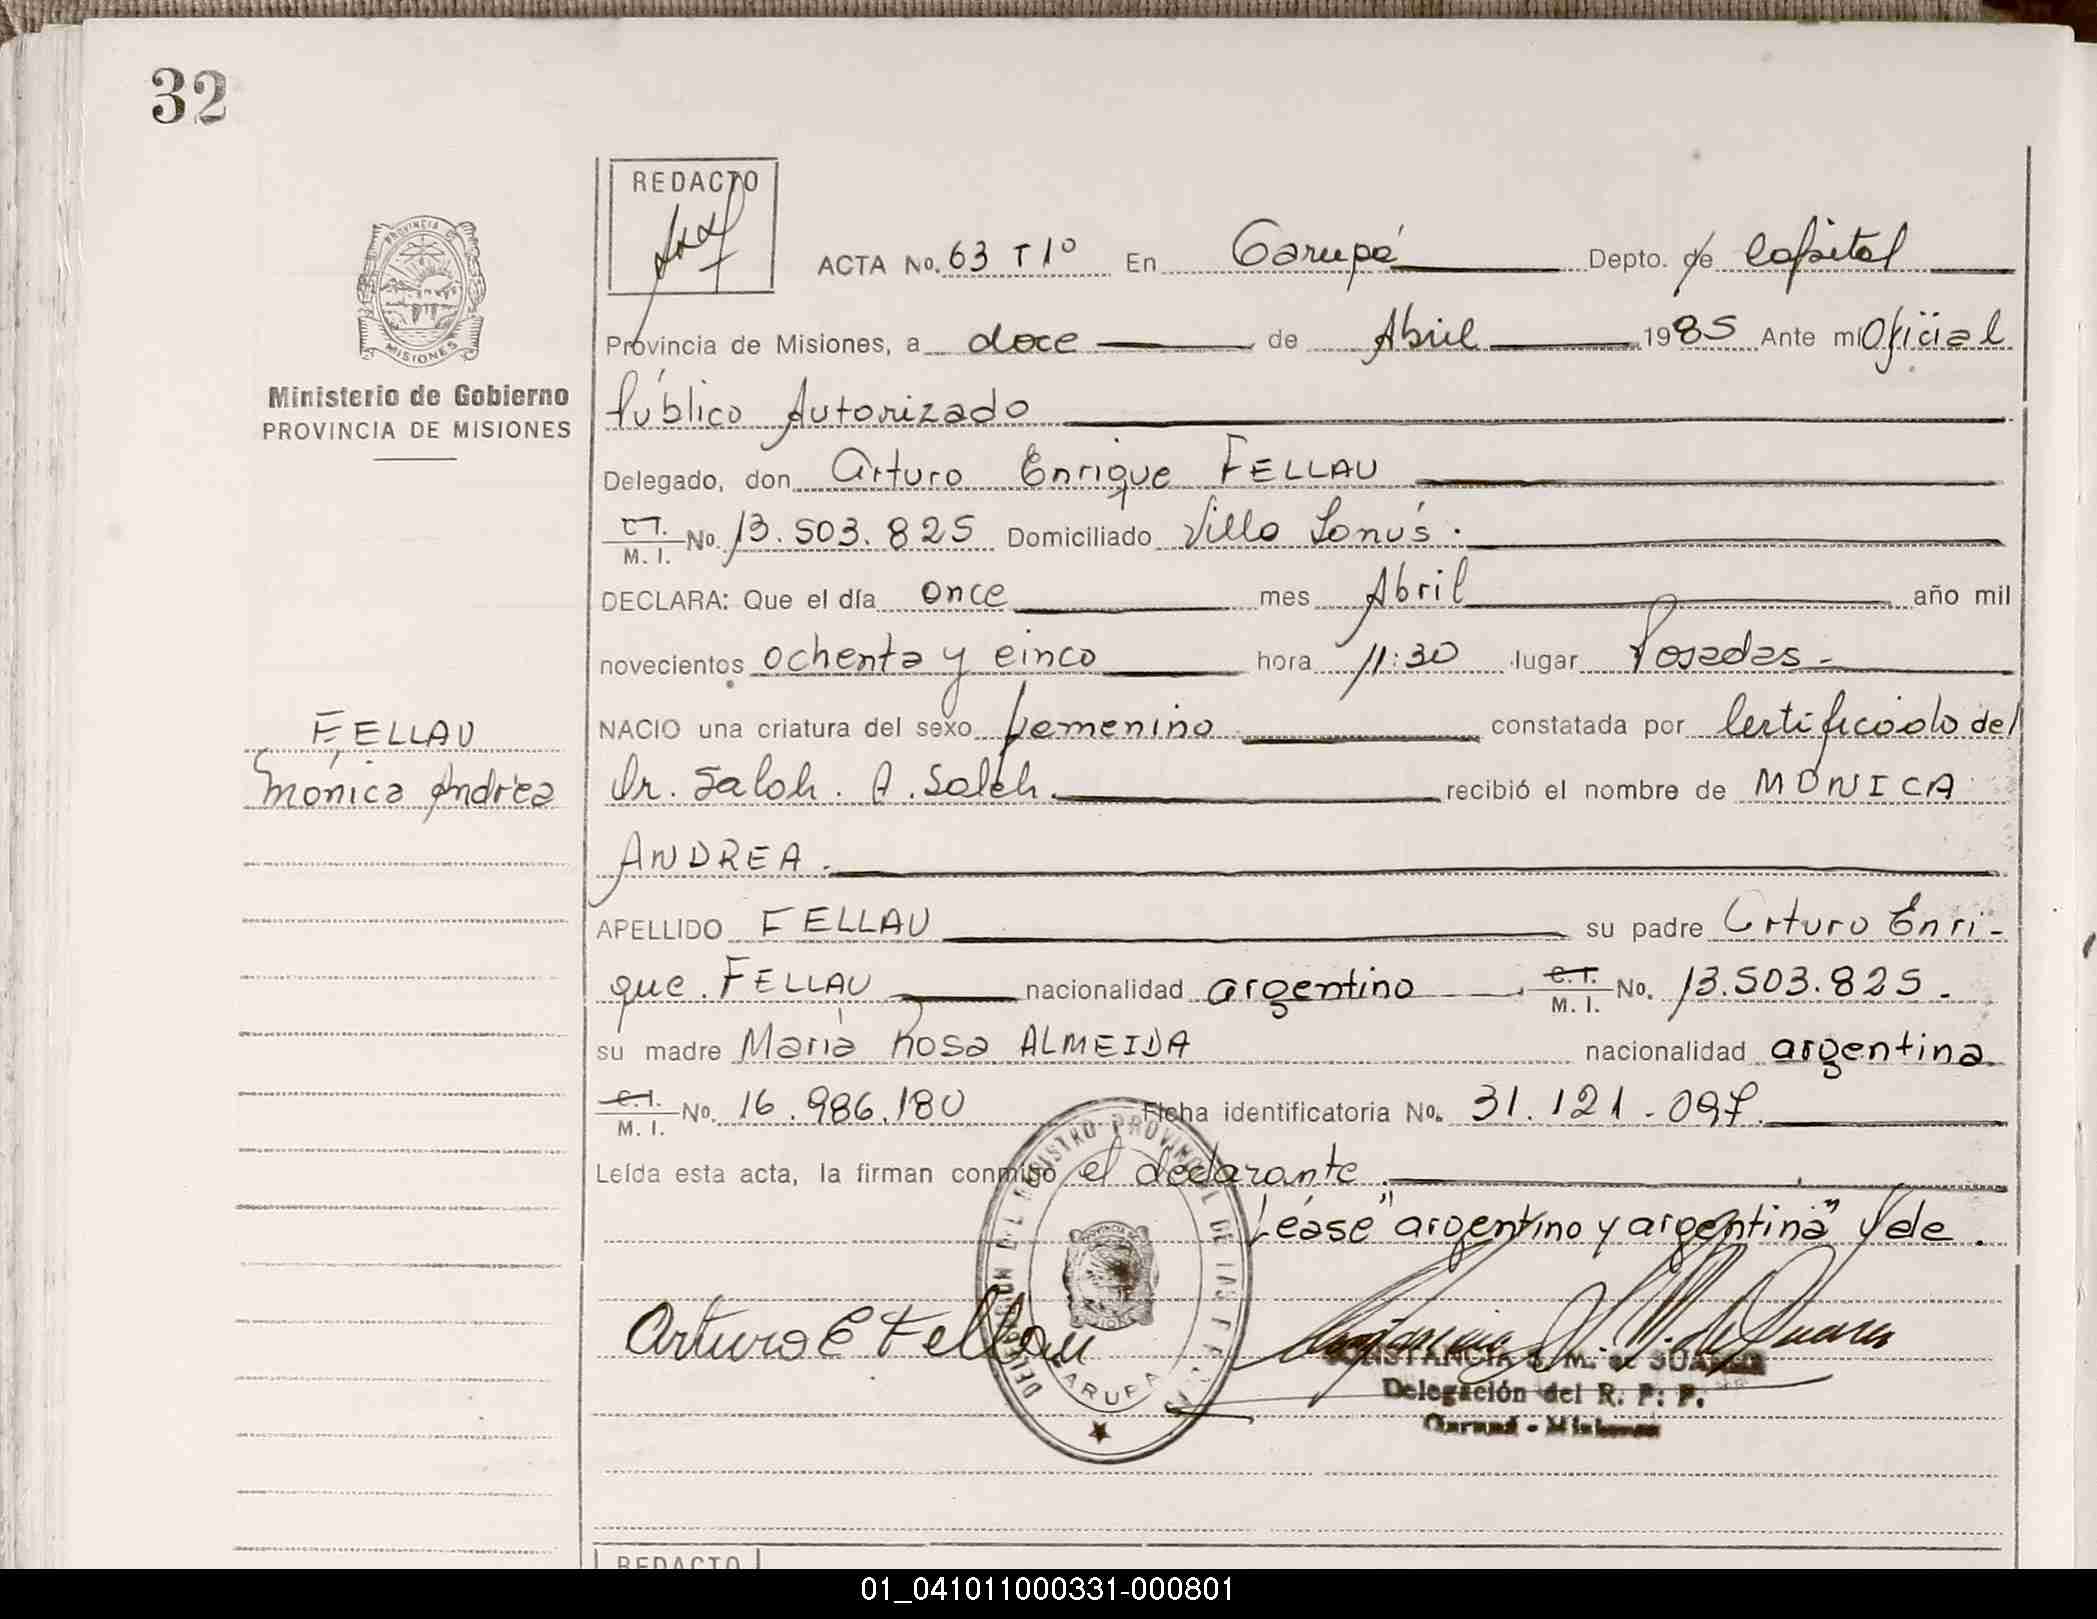 32
REDACTO
PROVINCIA DE
MISIONES
Ministerio de Gobierno
PROVINCIA DE MISIONES
ACTA No. 63 T 1º En Garupá Depto. de Capital
Provincia de Misiones, a doce de Abril 1985 Ante mi Oficial
Público Autorizado
Delegado, don Arturo Enrique FELLAU
C.I. M. I. No. 13.503.825 Domiciliado Villa Lanús.
DECLARA: Que el día once mes Abril año mil
novecientos ochenta y cinco hora 11:30 lugar Posadas -
NACIO una criatura del sexo femenino constatada por Certificado del
Dr. Saloh. A. Saleh. recibió el nombre de MONICA
ANDREA.
FELLAU
Mónica Andrea
APELLIDO FELLAU su padre Arturo Enri-
que. FELLAU nacionalidad argentino C.I. M. I. No. 13.503.825.
su madre María Rosa ALMEIDA nacionalidad argentina
C.I. M. I. No. 16.986.180 Ficha identificatoria No. 31.121.097.
Leída esta acta, la firman conmigo el declarante.
Léase "argentino y argentina" Vale.
DELEGACION DEL REGISTRO PROVINCIAL DE LAS PERSONAS
GARUPA
Arturo E Fellau
CONSTANCIA S. M. de SUAREZ
Delegación del R. P. P.
Garupá - Misiones
REDACTO
01_041011000331-000801